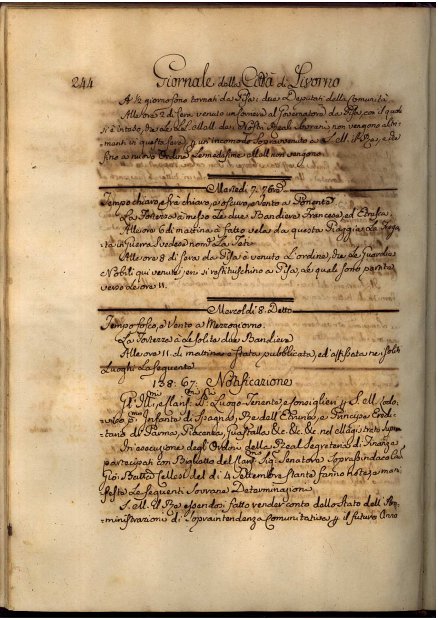 244 Giornale della Città di Livorno
A ½ giorno sono tornati da Pisa i due Deputati della Comunità
Alle ore 2 di sera venuto un corriere al Governatore da Pisa, con il quale
si è inteso, che le LL. MM. dei Nostri Reali Sovrani non vengono
in questa sera un incomodo sopravvenuto a L. M. il Re, e che
fino a nuovo Ordine Le medesime MM. non vengono.
Martedì 7.
Tempo chiaro, e oscuro, e Vento a Ponente
La Fortezza à messo Le due Bandiere Francese, ed Etrusca.
Alle ore 6 di mattina à fatto vela da questa Piaggia La Fregata
da guerra Svedese nom.a La Teti
Alle ore 8 di sera da Pisa è venuto L'ordine, che Le Guardie
Nobili qui venute, si restituischino a Pisa, le quali sono partite
verso Le ore 11.
Mercoldì 8. Detto
Tempo fosco, e Vento a Mezzogiorno.
La Fortezza à Le solite due Bandiere
Alle ore 11 di mattina è stata pubblicata, ed affissata nei soliti
Luoghi La seguente
138: 67. Notificazione
Gl' Ill.mi, e Luogo Tenente, e Consiglieri S. M. Lodovico
p.mo Infante di Spagna, Re dell'Etruria, e Principe Ereditario
di Parma, Piacenza, Guastalla &c. &c. &c. nel Magistrato Supremo
In esecuzione degl'Ordini della Real Segreteria di Finanze
partecipati con Biglietto dell' Sig.r Senatore Soprassindaco
Gio: Batta Nelli del dì 4 Settembre stante fanno noto, e manifesto
Le seguenti Sovrane Determinazioni
S. M. Il Re essendosi fatto render conto dello Stato dell'Amministrazioni
di Sopraintendenza Comunitativa il futuro Anno